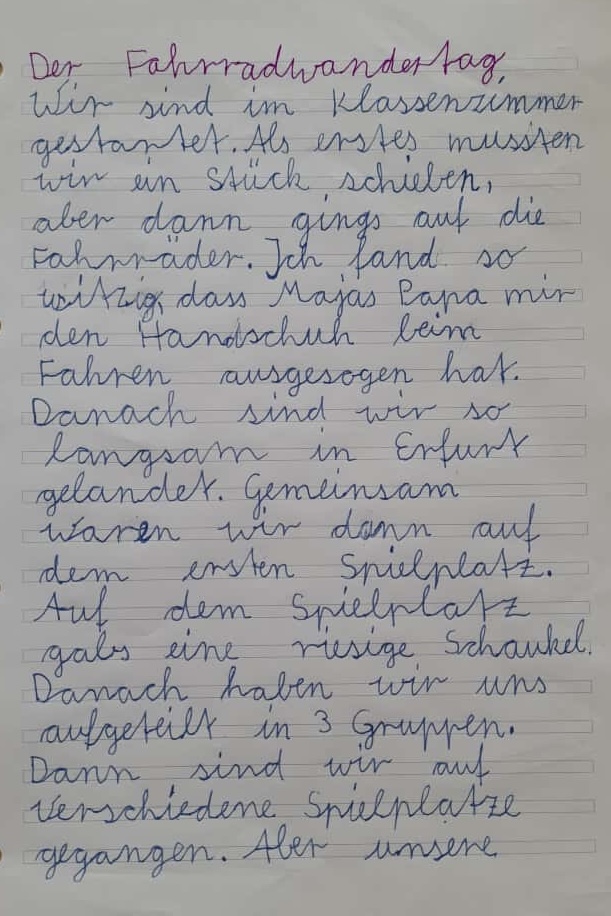 Der Fahrradwandertag
Wir sind im Klassenzimmer
gestartet. Als erstes mussten
wir ein Stück schieben,
aber dann gings auf die
Fahrräder. Ich fand so
witzig, dass Majas Papa mir
den Handschuh beim
Fahren ausgesogen hat.
Danach sind wir so
langsam in Erfurt
gelandet. Gemeinsam
waren wir dann auf
dem ersten Spielplatz.
Auf dem Spielplatz
gabs eine riesige Schaukel.
Danach haben wir uns
aufgeteilt in 3 Gruppen.
Dann sind wir auf
verschiedene Spielplätze
gegangen. Aber unsere